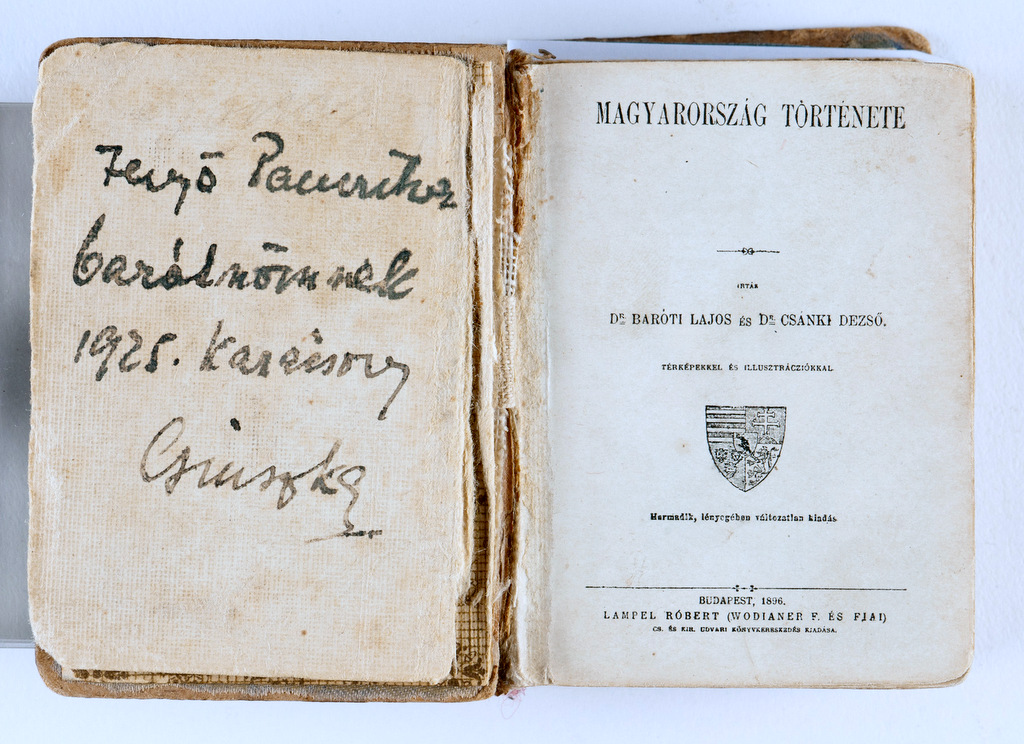 barátnőmnek
1925. Karácsony
Csinszka
MAGYARORSZÁG TÖRTÉNETE
IRTÁK
DR. BARÓTI LAJOS ÉS DR. CSÁNKI DEZSŐ.
TÉRKÉPEKKEL ÉS ILLUSZTRÁCZIÓKKAL
Harmadik, lényegében változatlan kiadás
BUDAPEST, 1896.
LAMPEL RÓBERT (WODIANER F. ÉS FIAI)
CS. ÉS KIR. UDVARI KÖNYVKERESKEDÉS KIADÁSA.